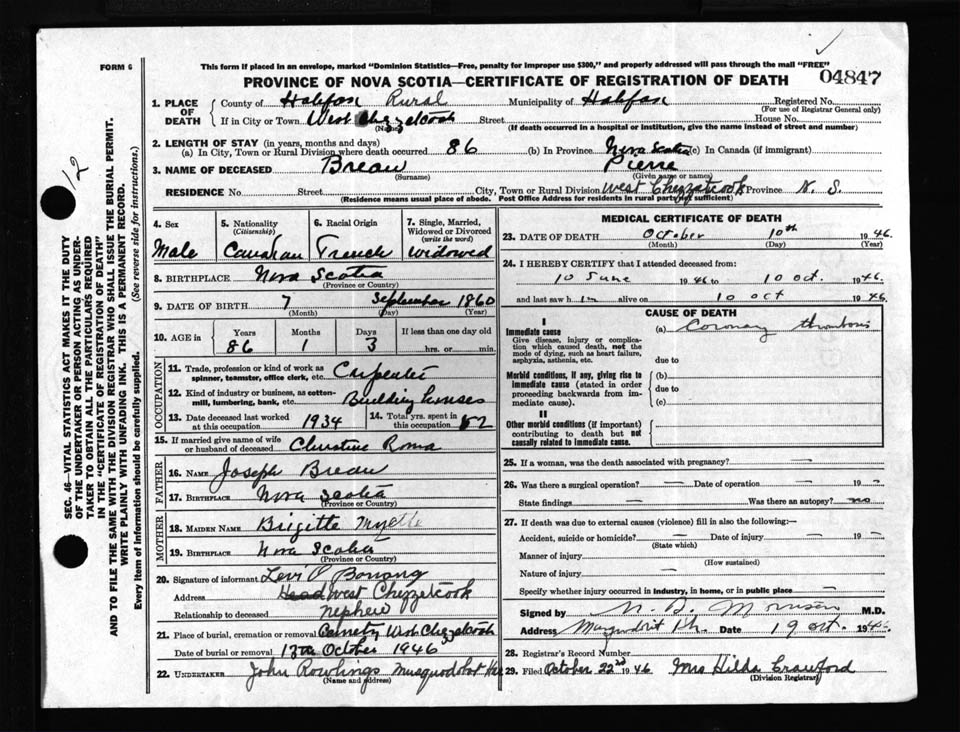 FORM 6
This form if placed in an envelope, marked "Dominion Statistics—Free, penalty for improper use $300," and properly addressed will pass through the mail "FREE"
PROVINCE OF NOVA SCOTIA—CERTIFICATE OF REGISTRATION OF DEATH
04847
1. PLACE OF DEATH
County of Halifax Rural Municipality of Halifax Registered No.
(For use of Registrar General only)
If in City or Town West Chezzetcook Street House No.
(Name) (If death occurred in a hospital or institution, give the name instead of street and number)
2. LENGTH OF STAY (in years, months and days)
(a) In City, Town or Rural Division where death occurred 86 (b) In Province Nova Scotia (c) In Canada (if immigrant)
3. NAME OF DECEASED Breau Pierre
(Surname) (Given name or names)
RESIDENCE No. Street City, Town or Rural Division West Chezzetcook Province N. S.
(Residence means usual place of abode. Post Office Address for residents in rural parts not sufficient)
4. Sex Male
5. Nationality (Citizenship) Canadian
6. Racial Origin French
7. Single, Married, Widowed or Divorced (write the word) Widowed
8. BIRTHPLACE Nova Scotia
(Province or Country)
9. DATE OF BIRTH 7 September 1860
(Month) (Day) (Year)
10. AGE in Years 86 Months 1 Days 3 If less than one day old hrs. or min.
OCCUPATION
11. Trade, profession or kind of work as spinner, teamster, office clerk, etc. Carpenter
12. Kind of industry or business, as cotten-mill, lumbering, bank, etc. Building houses
13. Date deceased last worked at this occupation 1934
14. Total yrs. spent in this occupation 52
15. If married give name of wife or husband of deceased Christine Roma
FATHER
16. NAME Joseph Breau
17. BIRTHPLACE Nova Scotia
MOTHER
18. MAIDEN NAME Brigitte Myette
19. BIRTHPLACE Nova Scotia
(Province or Country)
20. Signature of informant Levi P Bonang
Address Head West Chezzetcook
Relationship to deceased nephew
21. Place of burial, cremation or removal Cemetry West Chezzetcook
Date of burial or removal 13th October 1946
22. UNDERTAKER John Rowlings Musquodobot Har
(Name and address)
MEDICAL CERTIFICATE OF DEATH
23. DATE OF DEATH October 10th 1946.
(Month) (Day) (Year)
24. I HEREBY CERTIFY that I attended deceased from:
10 June 1946 to 10 Oct. 1946.
and last saw him alive on 10 Oct 1946.
CAUSE OF DEATH
I
Immediate cause
Give disease, injury or complication which caused death, not the mode of dying, such as heart failure, asphyxia, asthenia, etc.
(a) Coronary thrombosis
due to
Morbid conditions, if any, giving rise to immediate cause (stated in order proceeding backwards from immediate cause).
(b)
due to
(c)
II
Other morbid conditions (if important) contributing to death but not causally related to immediate cause.
25. If a woman, was the death associated with pregnancy? —
26. Was there a surgical operation? — Date of operation — 19 —
State findings — Was there an autopsy? no
27. If death was due to external causes (violence) fill in also the following:—
Accident, suicide or homicide? — Date of injury — 19 —
(State which)
Manner of injury
(How sustained)
Nature of injury —
Specify whether injury occurred in industry, in home, or in public place —
Signed by M.D.
Address Date 19 Oct. 1946.
28. Registrar's Record Number
29. Filed October 22nd 1946 Mrs Hilda Crawford
(Division Registrar)
SEC. 46—VITAL STATISTICS ACT MAKES IT THE DUTY
OF THE UNDERTAKER OR PERSON ACTING AS UNDER-
TAKER TO OBTAIN ALL THE PARTICULARS REQUIRED
IN THE "CERTIFICATE OF REGISTRATION OF DEATH"
AND TO FILE THE SAME WITH THE DIVISION REGISTRAR WHO SHALL ISSUE THE BURIAL PERMIT.
WRITE PLAINLY WITH UNFADING INK. THIS IS A PERMANENT RECORD.
Every item of information should be carefully supplied. (See reverse side for instructions.)
12